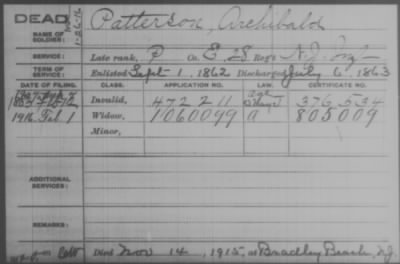 DEAD
NAME OF SOLDIER: Patterson, Archibald
SERVICE: Late rank, P Co. E, 28 Reg't N.J. Inf.
TERM OF SERVICE: Enlisted Sept 1, 1862 Discharged July 6, 1863
DATE OF FILING. CLASS. APPLICATION NO. LAW. CERTIFICATE NO.
Invalid, 472 211 376,534
1916 Feb 1 Widow, 1060099 a 805009
Minor,
ADDITIONAL SERVICES:
REMARKS:
Died Nov 14, 1915, at Bradley Beach, N.J.